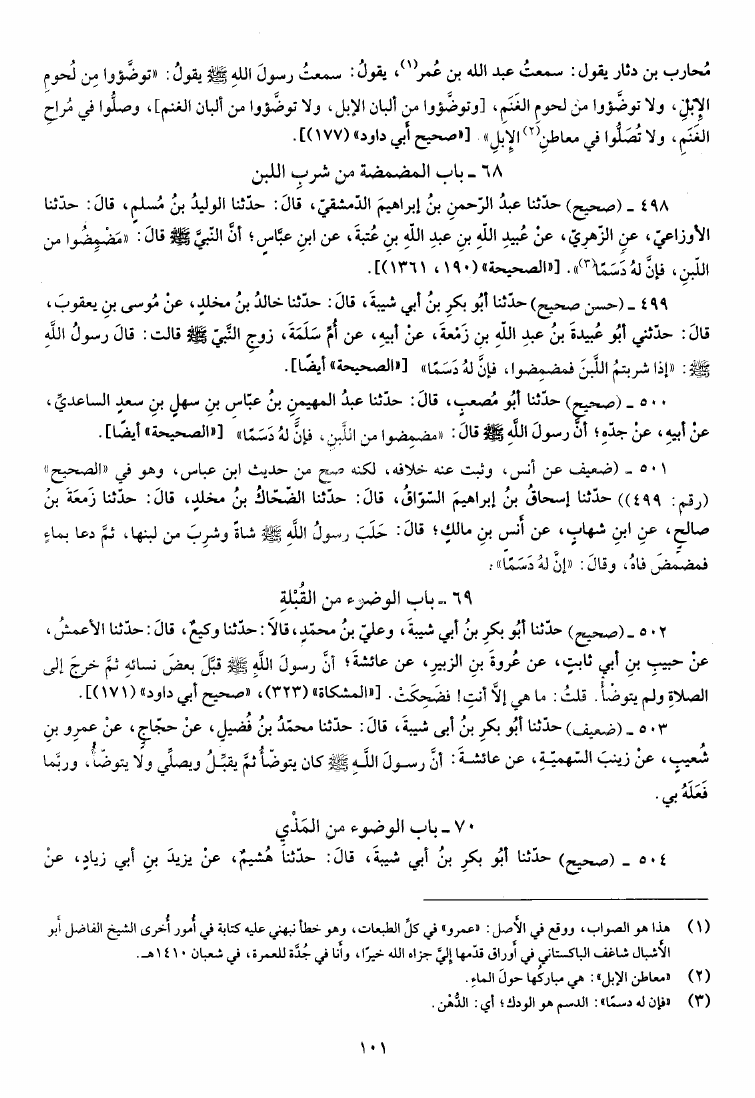 مُحارب بن دثار يقول: سمعتُ عبد الله بن عُمر(١)، يقولُ: سمعتُ رسولَ اللهِ ﷺ يقولُ: «توضَّؤوا مِن لُحومِ
الإِبْلِ، ولا توضَّؤوا من لحومِ الغَنَمِ، [وتوضَّؤوا من ألبان الإبل، ولا توضَّؤوا من ألبان الغنم]، وصلُّوا في مُراحِ
الغَنَمِ، ولا تُصَلُّوا في معاطنِ(٢) الإبلِ». [«صحيح أبي داود» (١٧٧)].
٦٨ ـ باب المضمضة من شربِ اللبن
٤٩٨ ـ (صحيح) حدّثنا عبدُ الرّحمنِ بنُ إبراهيمَ الدّمشقيّ، قالَ: حدّثنا الوليدُ بنُ مُسلمٍ، قالَ: حدّثنا
الأوزاعيّ، عنِ الزّهريّ، عنْ عُبيدِ اللّهِ بنِ عبدِ اللّهِ بنِ عُتبةَ، عن ابنِ عبَّاسٍ؛ أنَّ النّبيَّ ﷺ قالَ: «مَضْمِضُوا من
اللّبنِ، فإنَّ لهُ دَسَمًا(٣)». [«الصحيحة» (١٣٦١، ١٩٠)].
٤٩٩ ـ (حسن صحيح) حدّثنا أبُو بكرِ بنُ أبي شيبةَ، قالَ: حدّثنا خالدُ بنُ مخلدٍ، عنْ مُوسى بنِ يعقوبَ،
قالَ: حدّثني أبُو عُبيدةَ بنُ عبدِ اللّهِ بنِ زمْعةَ، عنْ أبيهِ، عن أُمِّ سَلَمَةَ، زوجِ النّبيّ ﷺ قالت: قالَ رسولُ اللّهِ
ﷺ: «إذا شربتمُ اللّبنَ فمضمِضوا، فإنَّ لهُ دَسَمًا» [«الصحيحة» أيضًا].
٥٠٠ ـ (صحيح) حدّثنا أبُو مُصعبٍ، قالَ: حدّثنا عبدُ المهيمنِ بنُ عبّاسِ بنِ سهلِ بنِ سعدٍ الساعديِّ،
عنْ أبيهِ، عنْ جدّهِ؛ أنَّ رسولَ اللّهِ ﷺ قالَ: «مضمِضوا من اللّبنِ، فإنَّ لهُ دَسَمًا» [«الصحيحة» أيضًا].
٥٠١ ـ (ضعيف عن أنس، وثبت عنه خلافه، لكنه صح من حديث ابن عباس، وهو في «الصحيح»
(رقم: ٤٩٩)) حدّثنا إسحاقُ بنُ إبراهيمَ السّوّاقُ، قالَ: حدّثنا الضّحّاكُ بنُ مخلدٍ، قالَ: حدّثنا زَمعَةَ بنُ
صالحٍ، عنِ ابنِ شهابٍ، عن أنسِ بنِ مالكٍ؛ قالَ: حَلَبَ رسولُ اللّهِ ﷺ شاةً وشربَ من لبنها، ثمَّ دعا بماءٍ
فمضمضَ فاهُ، وقالَ: «إنَّ لهُ دَسَمًا».
٦٩ ـ باب الوضوء من القُبْلةِ
٥٠٢ ـ (صحيح) حدّثنا أبُو بكرِ بنُ أبي شيبةَ، وعليّ بنُ محمّدٍ، قالاَ: حدّثنا وكيعٌ، قالَ: حدّثنا الأعمشُ،
عنْ حبيبِ بنِ أبي ثابتٍ، عن عُروةَ بنِ الزبيرِ، عن عائشةَ؛ أنَّ رسولَ اللّهِ ﷺ قبَّلَ بعضَ نسائهِ ثمَّ خرجَ إلى
الصلاةِ ولم يتوضّأْ. قلتُ: ما هي إلاَّ أنتِ! فضَحِكَتْ. [«المشكاة» (٣٢٣)، «صحيح أبي داود» (١٧١)].
٥٠٣ ـ (ضعيف) حدّثنا أبُو بكرِ بنُ أبى شيبةَ، قالَ: حدّثنا محمّدُ بنُ فُضيلٍ، عنْ حجّاجٍ، عنْ عمرِو بنِ
شُعيبٍ، عنْ زينبَ السّهميّةِ، عن عائشةَ: أنَّ رسولَ اللّهِ ﷺ كان يتوضّأُ ثمَّ يقبِّلُ ويصلِّي ولا يتوضّأُ، وربَّما
فَعَلَهُ بي.
٧٠ ـ باب الوضوء من المَذْي
٥٠٤ ـ (صحيح) حدّثنا أبُو بكرِ بنُ أبي شيبةَ، قالَ: حدّثنا هُشيمٌ، عنْ يزيدَ بنِ أبي زيادٍ، عنْ
(١) هذا هو الصواب، ووقع في الأصل: «عمرو» في كلِّ الطبعات، وهو خطأ نبهني عليه كتابة في أمور أخرى الشيخ الفاضل أبو
الأشبال شاغف الباكستاني في أوراق قدّمها إليَّ جزاه الله خيرًا، وأنا في جُدَّة للعمرة، في شعبان ١٤١٠هـ.
(٢) «معاطن الإبل»: هي مباركُها حولَ الماءِ.
(٣) «فإن له دسمًا»: الدسم هو الودك؛ أي: الدُّهْن.
١٠١